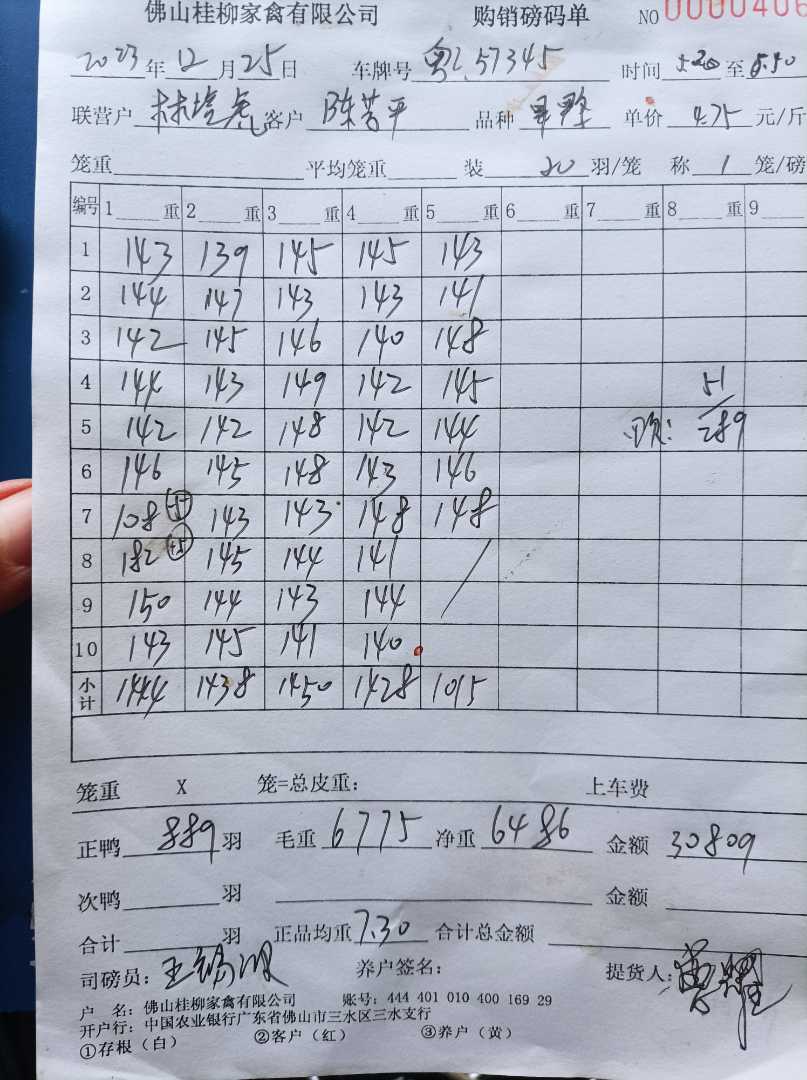 佛山桂柳家禽有限公司 购销磅码单 NO 0000406
2023年12月25日 车牌号 粤L57345 时间 5.20 至 5.50
联营户 林 虎 客户 陈芳平 品种 单价 4.75 元/斤
笼重 平均笼重 装 20 羽/笼 称 1 笼/磅
编号 1 重 2 重 3 重 4 重 5 重 6 重 7 重 8 重 9
1 143 139 145 145 143
2 144 147 143 143 141
3 142 145 146 140 148
4 144 143 149 142 145 51
5 142 142 148 142 144 289
6 146 145 148 143 146
7 108 143 143 148 148
8 182 145 144 141
9 150 144 143 144
10 143 145 141 140
小计 1444 1438 1450 1428 1015
笼重 X 笼=总皮重: 上车费
正鸭 889 羽 毛重 6775 净重 6486 金额 30809
次鸭 羽 金额
合计 羽 正品均重 7.30 合计总金额
司磅员: 王锡 养户签名: 提货人:
户 名: 佛山桂柳家禽有限公司 账号: 444 401 010 400 169 29
开户行: 中国农业银行广东省佛山市三水区三水支行
①存根(白) ②客户(红) ③养户(黄)